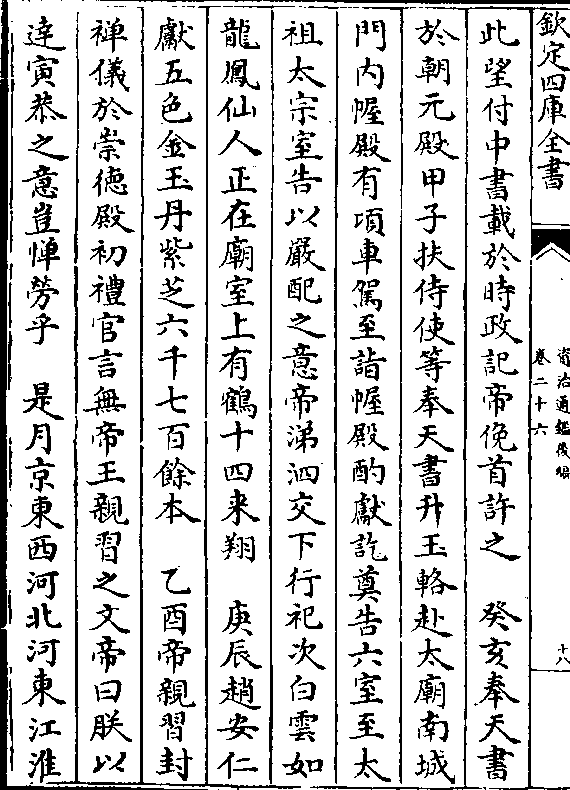 欽定四庫全書
資治通鑑後編
卷二十六
十八
此望付中書載於時政記帝俛首許之　癸亥奉天書
於朝元殿甲子扶侍使等奉天書升玉輅赴太廟南城
門内幄殿有項車駕至詣幄殿酌獻訖奠告六室至太
祖太宗室告以嚴配之意帝涕泗交下行祀次白雲如
龍鳳仙人正在廟室上有鶴十四来翔　庚辰趙安仁
獻五色金玉丹紫芝六千七百餘本　乙酉帝親習封
禅儀於崇德殿初禮官言無帝王親習之文帝曰朕以
達寅恭之意豈憚勞乎　是月京東西河北河東江淮